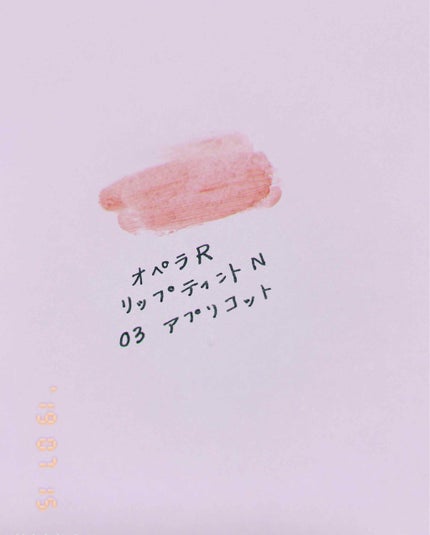 オペラR
リップティントN
03 アプリコット
'19 07 15